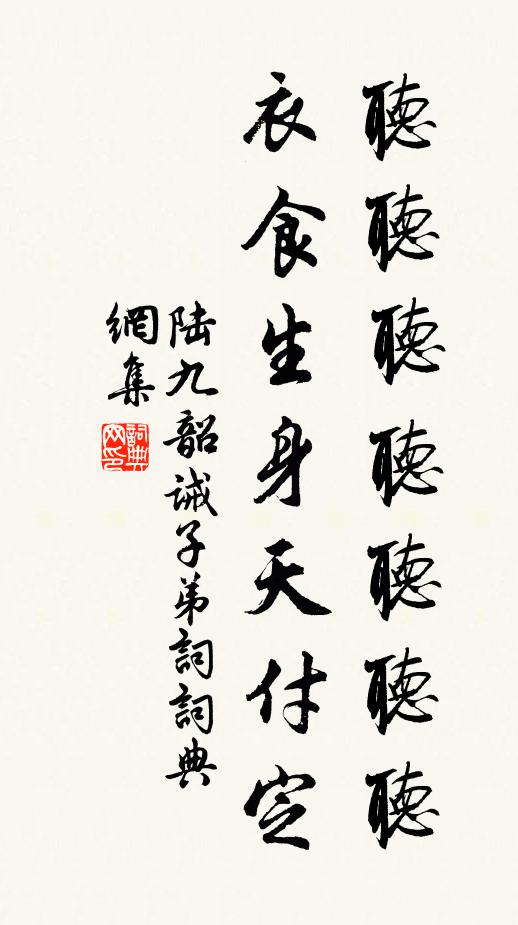 聽聽聽聽聽聽聽
衣食生身天付定
陆九韶诫子弟詞詞典
網集
詞典
网印